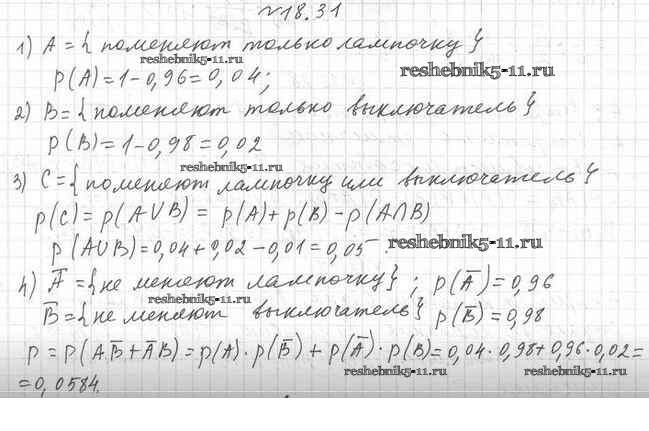 №18.31
1) A = { поменяют только лампочку }
reshebnik5-11.ru
reshebnik5-11.ru
p(A)=1-0,96=0,04;
2) B={ поменяют только выключатель}
p(B)=1-0,98=0,02
reshebnik5-11.ru
3) C={ поменяют лампочку или выключатель}
p(C)= p(A∪B) = p(A)+p(B)-p(A∩B)
p(A∪B)=0,04+0,02-0,01=0,05.
reshebnik5-11.ru
4) A̅ = {не меняют лампочку}; p(A̅)=0,96
reshebnik5-11.ru
B̅={не меняют выключатель} p(B̅)=0,98
p=p(AB̅+A̅B)=p(A)·p(B̅)+p(A̅)·p(B)=0,04·0,98+0,96·0,02=
reshebnik5-11.ru
reshebnik5-11.ru
=0,0584.